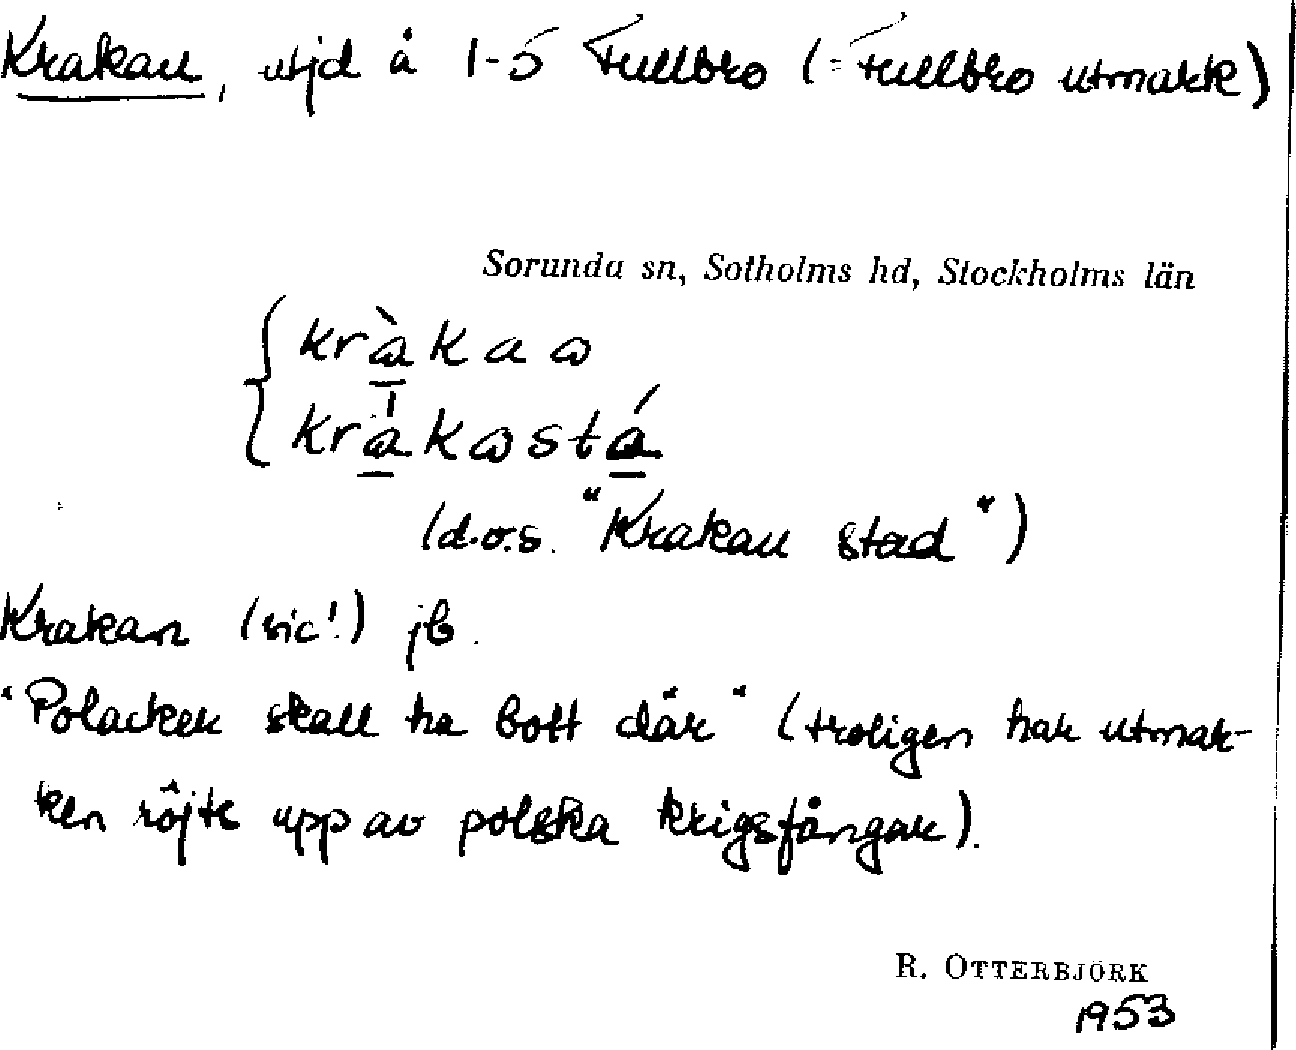 Krakau, utjd å 1-5 Fullbro (= Fullbro utmark)
Sorunda sn, Sotholms hd, Stockholms län
kràkaω
krakωstá
(d.v.s. "Krakau stad")
Krakan (sic!) jb.
"Polacker skall ha bott där" (troligen har utmar-
ken röjts upp av polska krigsfångar).
R. OTTERBJÖRK
1953